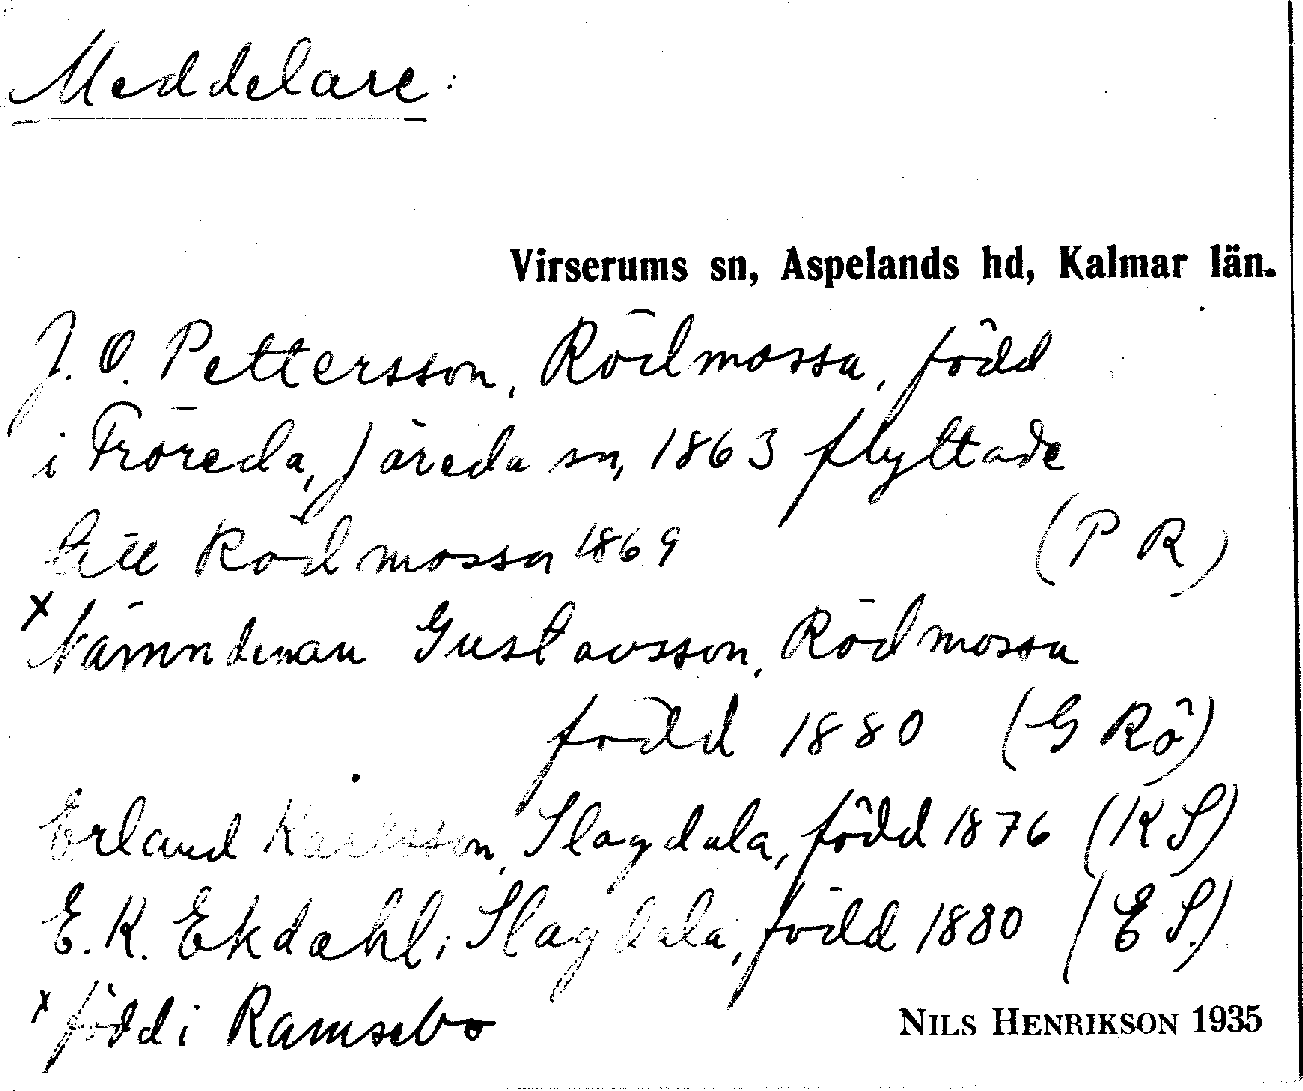 Meddelare:
Virserums sn, Aspelands hd, Kalmar län.
J. O. Pettersson, Rödmossa, född
i Fröreda, Järeda sn, 1863 flyttade
till Rödmossa 1869 (P R)
x Nämndeman Gustavsson, Rödmossa
född 1880 (G Rö)
Erland Karlsson, Slagdala, född 1876 (K S)
E. K. Ekdahl, Slagdala, född 1880 (E S)
x född i Ramsebo
NILS HENRIKSON 1935